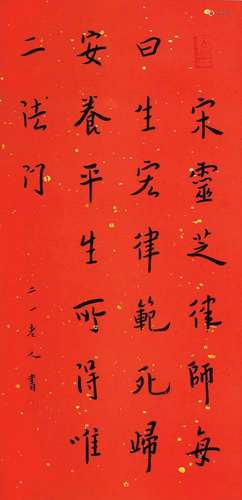 宋靈芝律師每
曰生宏律範死歸
安養平生所得唯
二法门
二一老人書